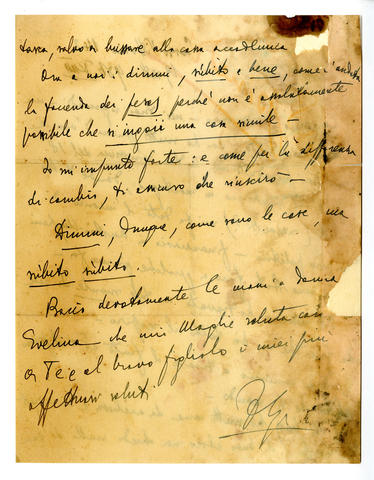 tasca, salvo a bussare alla cassa accademica
Ora a noi: dimmi, subito e bene, com'è andata
la facenda dei pesos perché non è assolutamente
possibile che si ingoii una cosa simile –
Io m'impunto forte: e come per la differenza
di cambio, ti assicuro che riuscirò –
Dimmi, dunque, come sono le cose, ma
subito subito.
Bacio devotamente le mani a donna
Evelina che mia Moglie saluta con
a Te e al bravo figliolo i miei più
affettuosi saluti